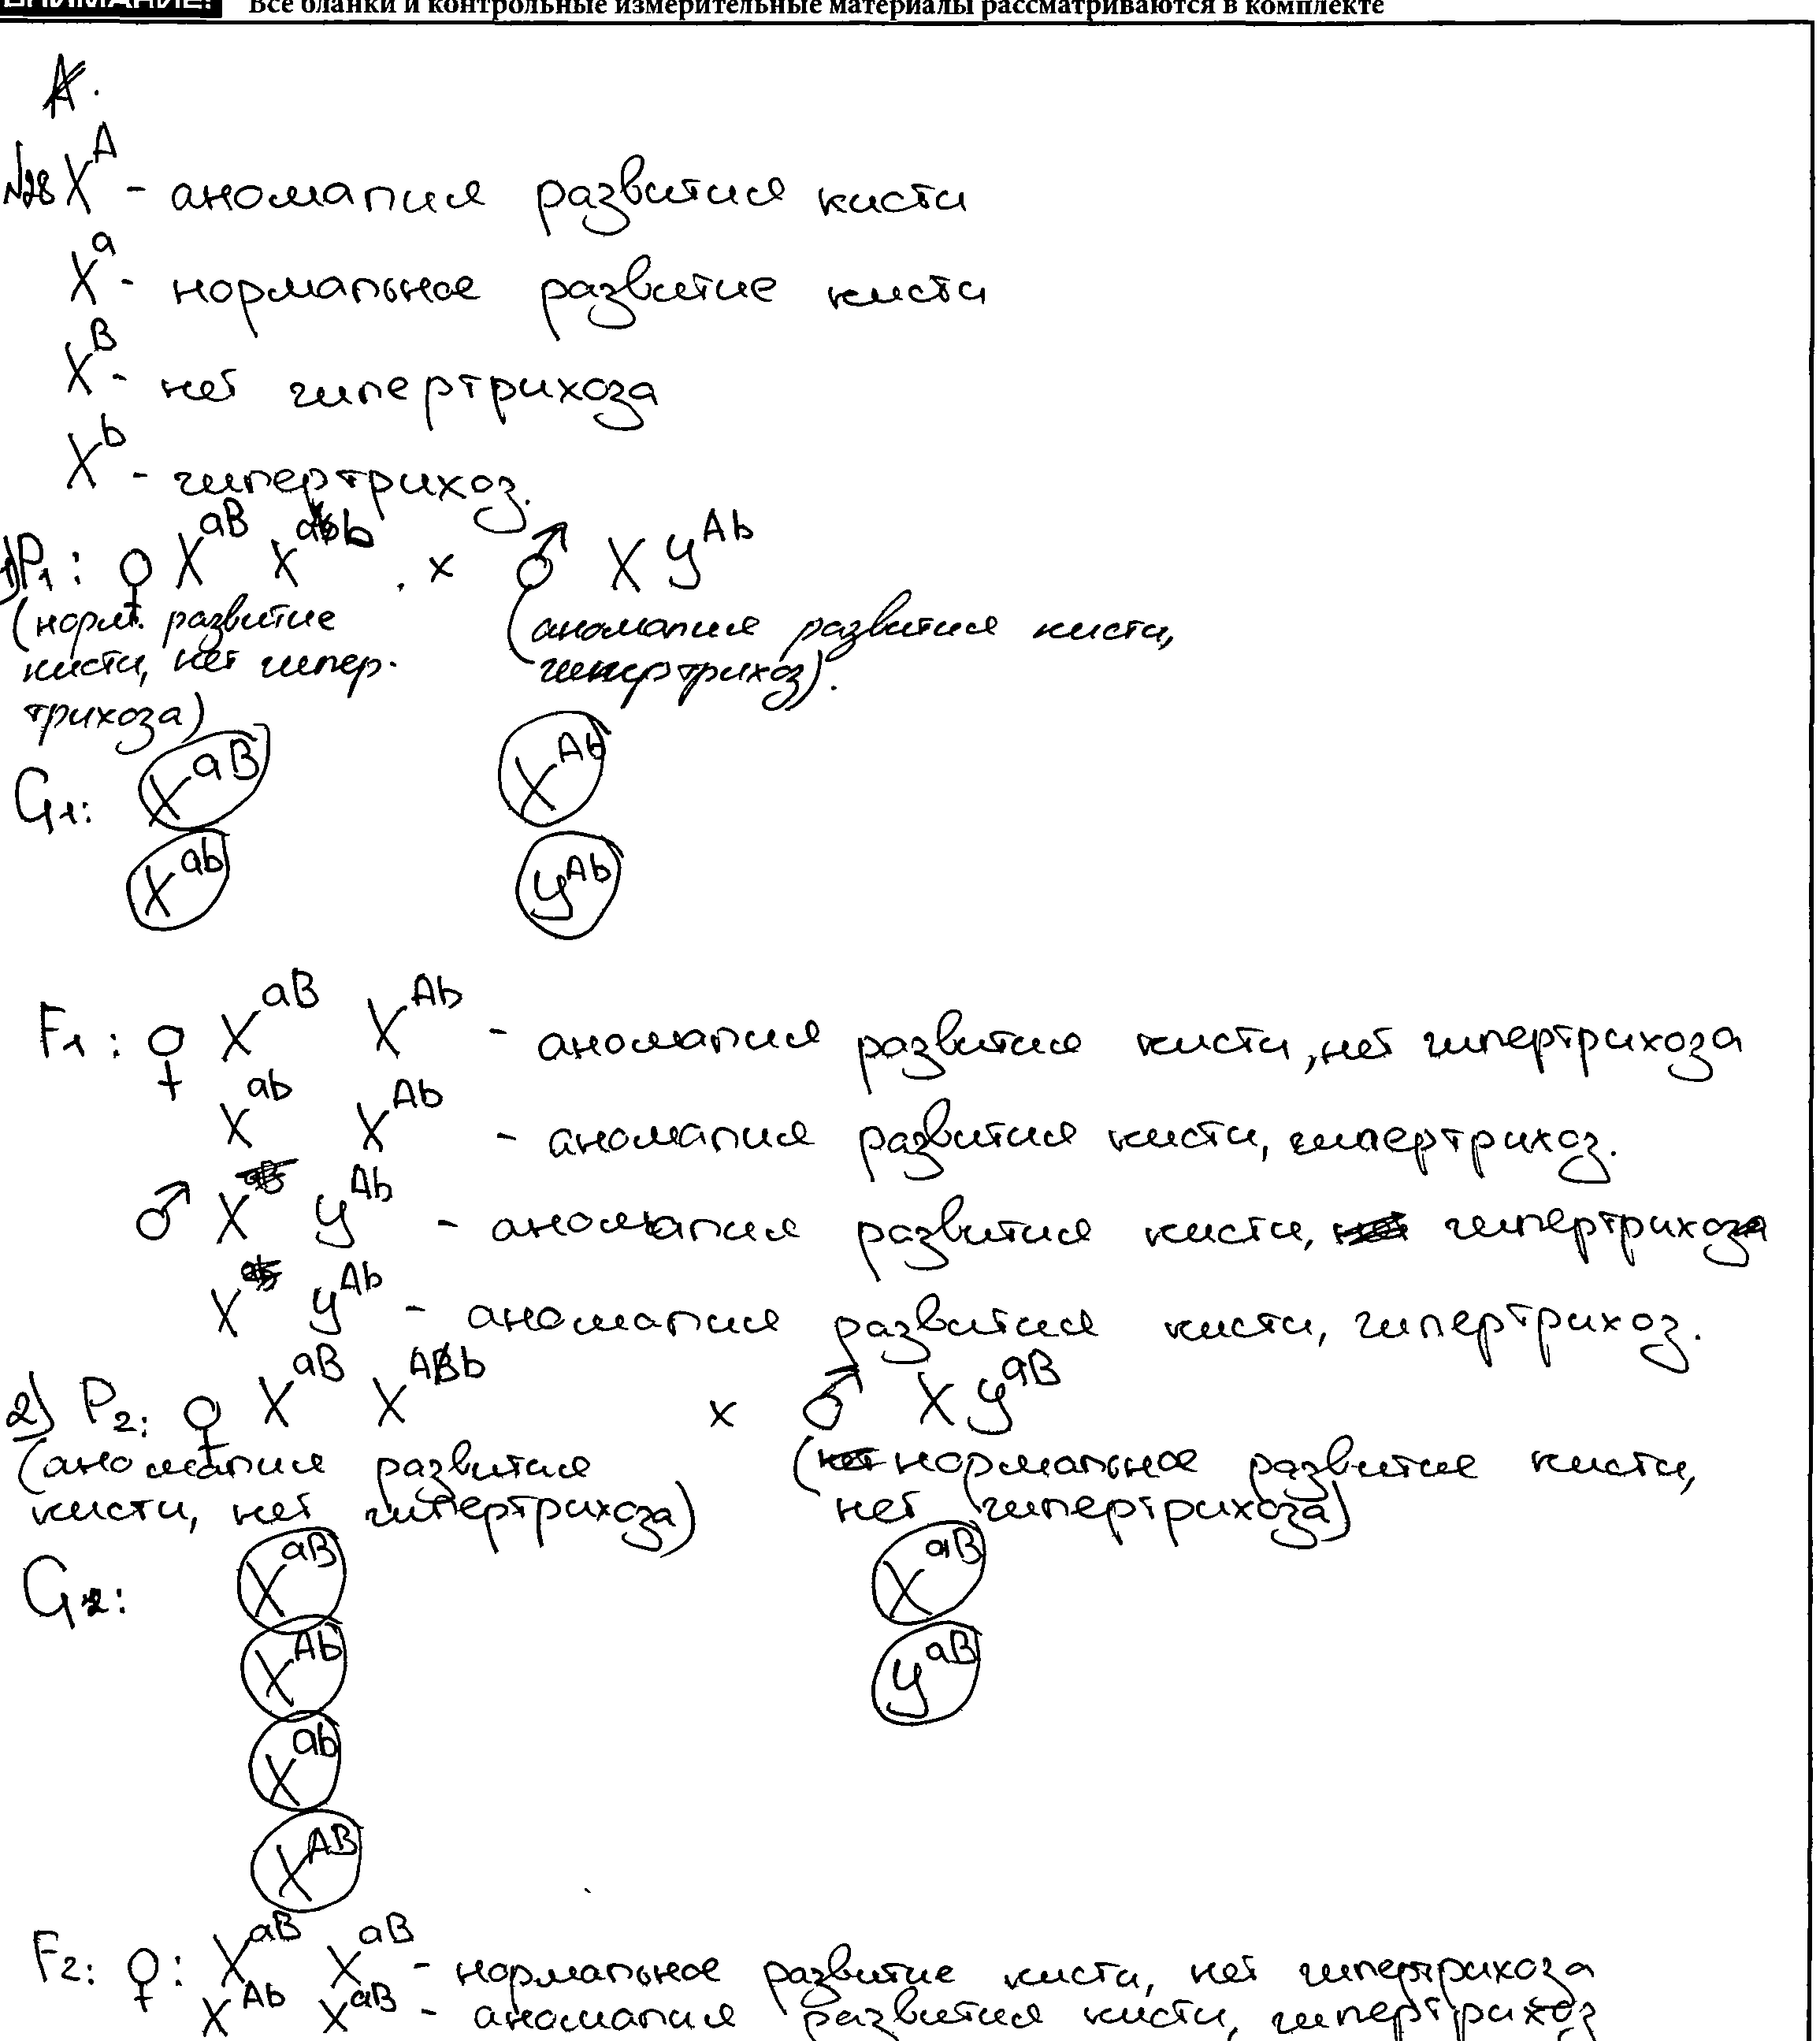 ВНИМАНИЕ! Все бланки и контрольные измерительные материалы рассматриваются в комплекте
№28 X^A - аномалия развития кисти
X^a - нормальное развитие кисти
X^B - нет гипертрихоза
X^b - гипертрихоз.
1) P1: ♀ X^aB X^ab × ♂ X У^Ab
(норм. развитие (аномалия развития кисти,
кисти, нет гипер- гипертрихоз).
трихоза)
G1: X^aB X^Ab
X^ab У^Ab
F1: ♀ X^aB X^Ab - аномалия развития кисти, нет гипертрихоза
X^ab X^Ab - аномалия развития кисти, гипертрихоз.
♂ X У^Ab - аномалия развития кисти, гипертрихоз
X У^Ab - аномалия развития кисти, гипертрихоз.
2) P2: ♀ X^aB X^Ab × ♂ X У^aB
(аномалия развития (нормальное развитие кисти,
кисти, нет гипертрихоза) нет гипертрихоза)
G2: X^aB X^aB
X^Ab У^aB
X^ab
X^AB
F2: ♀: X^aB X^aB - нормальное развитие кисти, нет гипертрихоза
X^Ab X^aB - аномалия развития кисти, гипертрихоз